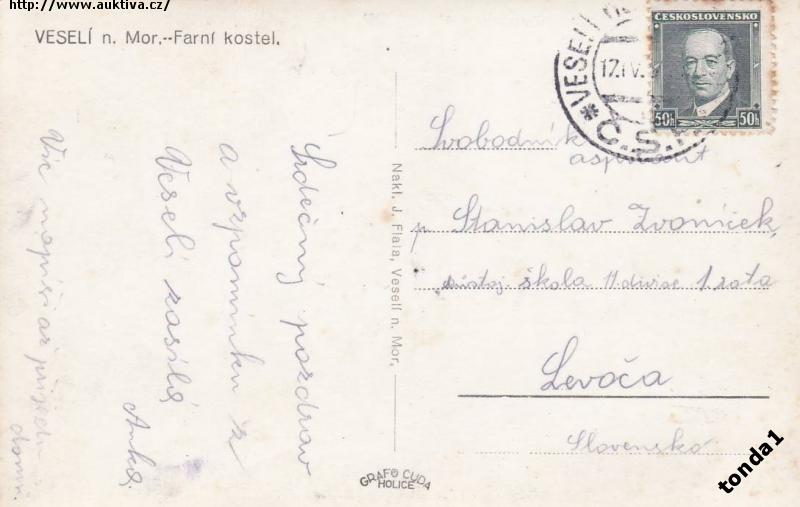 http://www.auktiva.cz/
VESELÍ n. Mor.--Farní kostel.
Srdečný pozdrav
a vzpomínku z
Veselí zasílá
Anka.
Víc napíši až přijedu
domů.
Nakl. J. Fiala, Veselí n. Mor.
GRAFO CUDA
HOLICE
ČESKOSLOVENSKO
50h 50h
VESELÍ
17.IV.
Č.S.
Svobodník
aspirant
p Stanislav Zvoníček,
důstoj škola 11 divise 1 rota
Levoča
Slovensko
tonda1